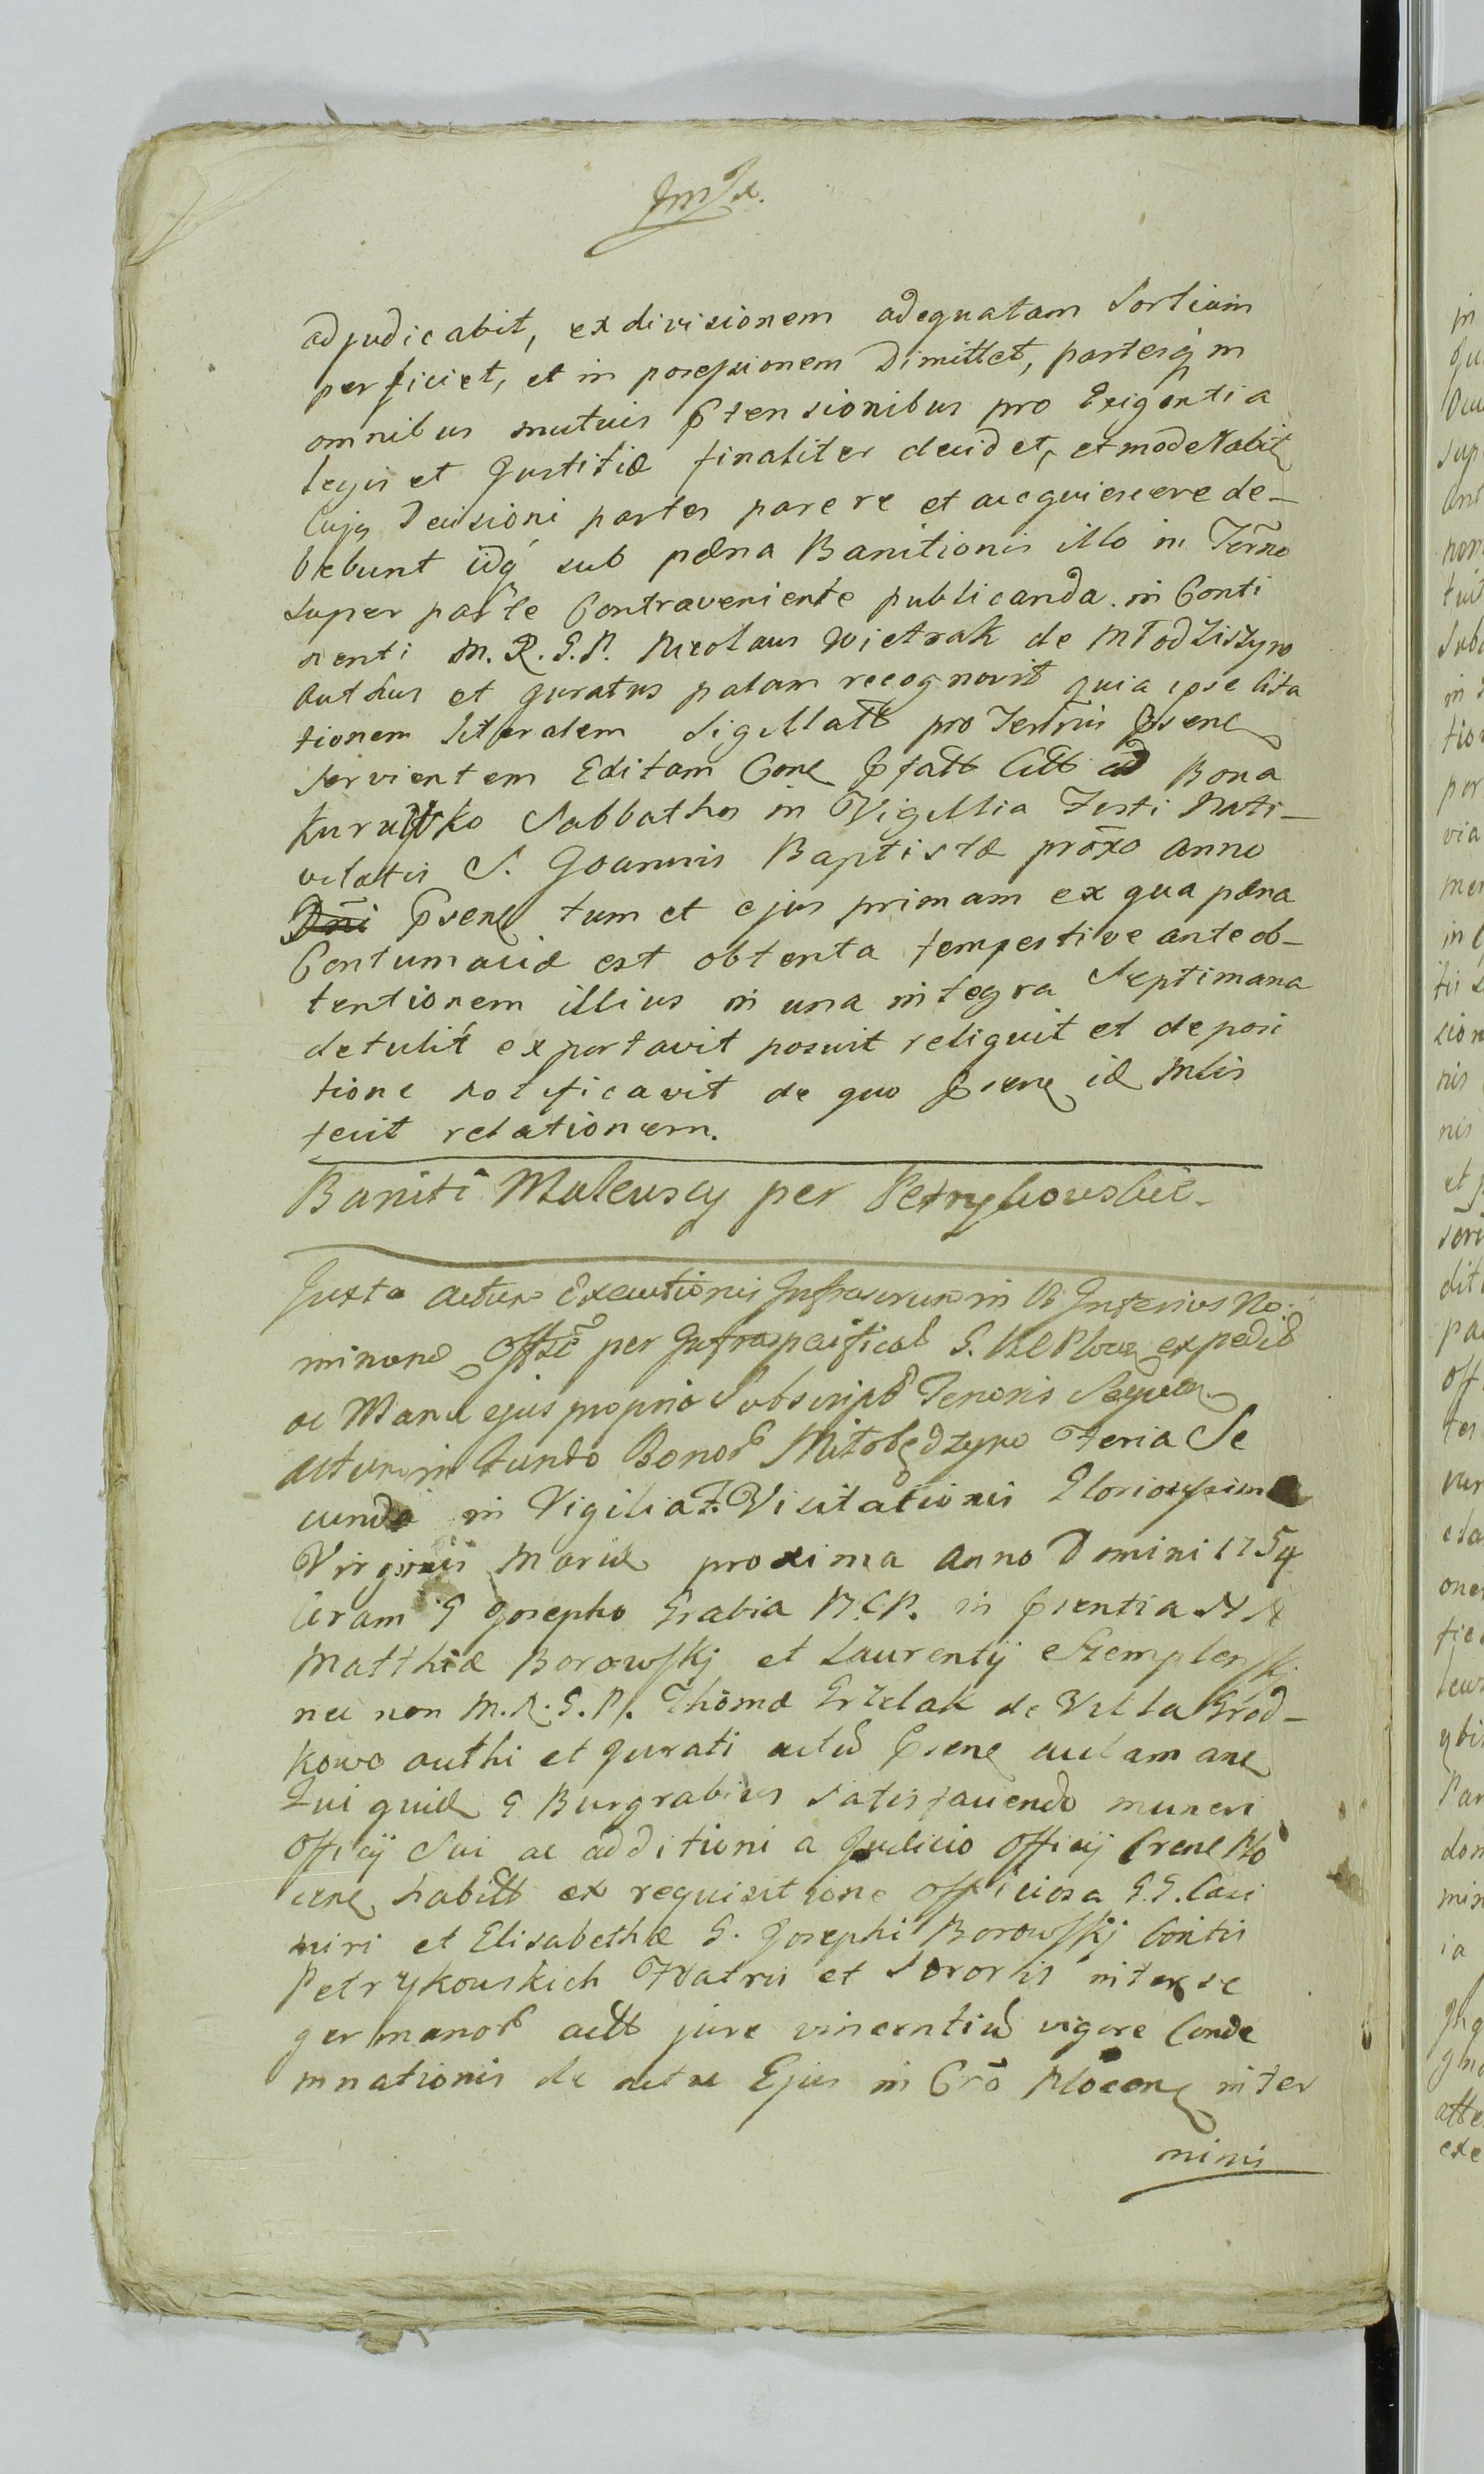 adjudicabit, ex divisionem adequatam Sortium
perficiet, et in possessionem Dimittet, partesq in
omnibus mutuis Ptensionibus pro Exigentia
legis et Justitiæ finaliter decidet, et moderabit
Cujq Decisioni partes parere et acquiescere de-
bebunt idq sub pæna Banitionis illo in Terño
super parte Contraveniente publicanda. in Conti
nenti M. R. G. P. Nicolaus Wietrak de Młodziszyno
authus et juratus palam recognovit quia ipse Cita
tionem literalem Sigillatt pro Terminis Psene
servientem Editam Cone Pfatt Citt ad Bona
Sabbatho in Vigillia Festi Nati-
vitatis S. Joannis Baptistæ proxo anno
Dni Psene tum et ejus primam ex qua pæna
Contumaciæ est obtenta tempestive ante ob-
tentionem illius in una integra Septimana
detulit exportavit posuit reliquit et deposi
tione notificavit de quo Psene id Mlis
fecit relationem.
Baniti Maleuscy per Petrykowskie.
Juxta actum Executionis in Interius No
minand per G. expedid
ac Manu ejus propria Subscript Tenoris Sequen
actum in Fundo Bonor Feria Se
cunda in Vigilia F. Visitationis Gloriosissima
Virginis Mariæ proxima Anno Domini 1754
Coram G Josepho Grabia B.C.P. in Psentia NN
Matthiæ Borowskj et Laurentij
nec non M. R. G. P. Thomæ Grzelak de Villa Grod-
kowo authi et jurati actus Psene
Qui quid G Burgrabius satisfaciendo muneri
Officij Sui ac additioni a Judicio Officij Crene Plo
cene habitt ex requisitione officiosa G.G. Casi
miri et Elisabethæ G. Josephi Borowskj Contis
Petrykowskich Fratris et Sororis inter se
germanor actt jure vincentiu vigore Conde
mnationis de actu Ejus in Crō Plocen inter
minis